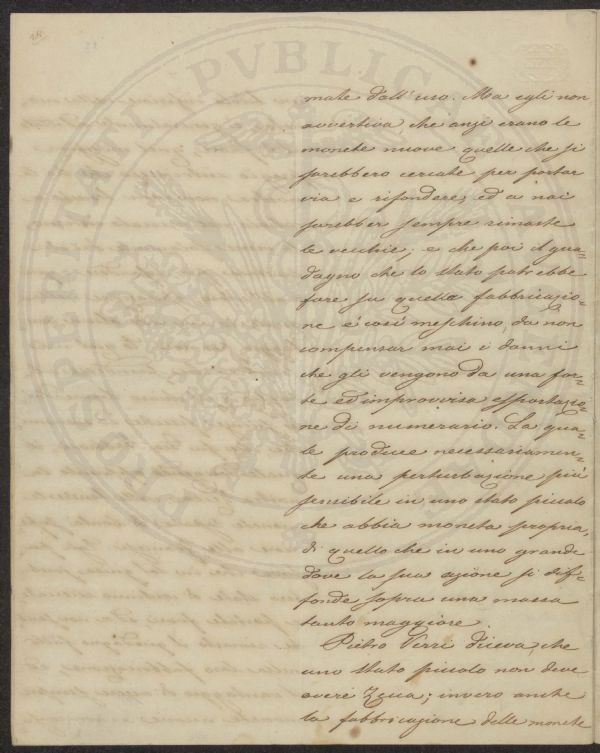 28
PROSPERITATI PVBLICAE
mate dall'uso. Ma egli non
avvertiva, che anzi erano le
monete nuove quelle che si
sarebbero cercate per portar
via e rifondere, ed a noi
sarebber sempre rimaste
le vecchie; e che poi il gua=
dagno che lo stato potrebbe
fare su quella fabbricazio=
ne è così meschino, da non
compensar mai i danni
che gli vengono da una for=
te ed improvvisa esportazio=
ne di numerario. La qua=
le produce necessariamen=
te una perturbazione più
sensibile in uno stato piccolo
che abbia moneta propria,
di quello che in uno grande
dove la sua azione si dif=
fonde sopra una massa
tanto maggiore.
Pietro Verri diceva, che
uno stato piccolo non deve
avere Zecca; invero anche
la fabbricazione delle monete